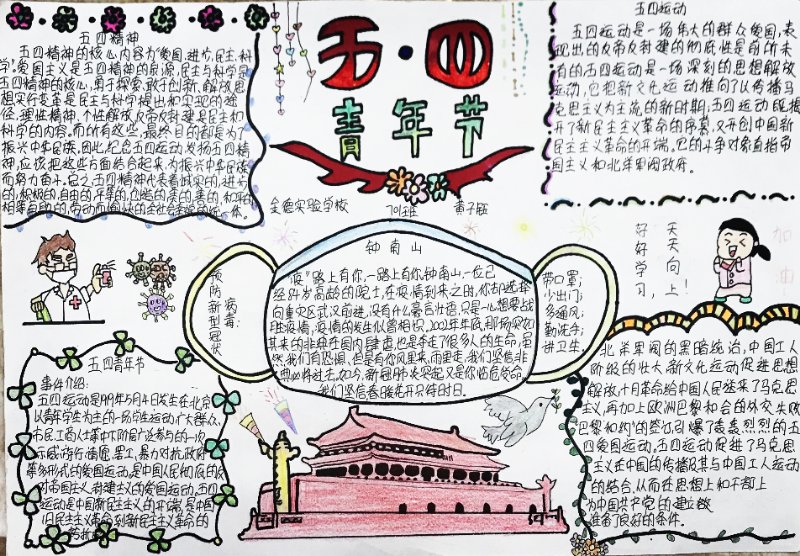 五四精神
五四精神的核心内容为爱国、进步、民主、科
学。爱国主义是五四精神的源泉,民主与科学是
五四精神的核心,勇于探索、敢于创新、解放思
想、实行变革是民主与科学提出和实现的途
径,理性精神、个性解放、反帝反封建是民主和
科学的内容。而所有这些,最终目的都是为了
振兴中华民族。因此,纪念五四运动、发扬五四精
神,应该把这些方面结合起来,为振兴中华民族
而努力奋斗。总之,五四精神代表着诚实的、进步
的、积极的、自由的、平等的、创造的、美的、善的、和平的、
五·四
青年节
实验学校
701班
五四运动
五四运动是一场伟大的群众爱国,表
现出的反帝反封建的彻底性是前所未
有的,五四运动是一场深刻的思想解放
运动,它把新文化运动推向了以传播马
克思主义为主流的新时期;五四运动既揭
开了新民主主义革命的序幕,又开创中国新
民主主义革命的开端,它的斗争对象直指帝
国主义和北洋军阀政府。
好好学习,
天天向上!
加油
预防新型冠状
病毒:
钟南山
"疫"路上有你,一路上有你钟南山,一位已
经外岁高龄的院士,在疫情到来之时,你却选择
向重灾区武汉前进,没有什么豪言壮语,只是一心想要战
胜疫情,疫情的发生似曾相识,2002年年底,那场突如
其来的非典在国内肆虐,也是夺走了很多人的生命,虽
然,我们有恐惧,但是有你风里来,雨里走,我们坚信非
典必将过去,如今,新冠肺炎突起又是你临危受命,
我们坚信春暖花开只待时日。
带口罩;
少出门;
多通风;
勤洗手;
讲卫生。
五四青年节
事件介绍:
五四运动是1919年5月4日发生在北京
以青年学生为主的一场学生运动,广大群众、
市民、工商人士等中下阶层广泛参与的一次
示威游行、请愿、罢工、暴力对抗政府
等多形式的爱国运动,是中国人民彻底的反
对帝国主义、封建主义的爱国运动。五四
运动是中国新民主主义的开端,是中国
旧民主主义革命到新民主主义革命的
北洋军阀的黑暗统治,中国工人
阶级的壮大,新文化运动促进思想
解放,十月革命给中国人民送来了马克思
主义,再加上欧洲巴黎和会的外交失败
《巴黎和约》的签订引爆了轰轰烈烈的五
四爱国运动。五四运动促进了马克思
主义在中国的传播及其与中国工人运动
的结合,从而在思想上和干部上
为中国共产党的建立做
准备了良好的条件。